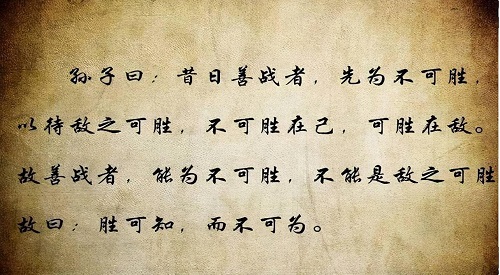 孙子曰：昔日善战者，先为不可胜，
以待敌之可胜，不可胜在己，可胜在敌。
故善战者，能为不可胜，不能是敌之可胜
故曰：胜可知，而不可为。